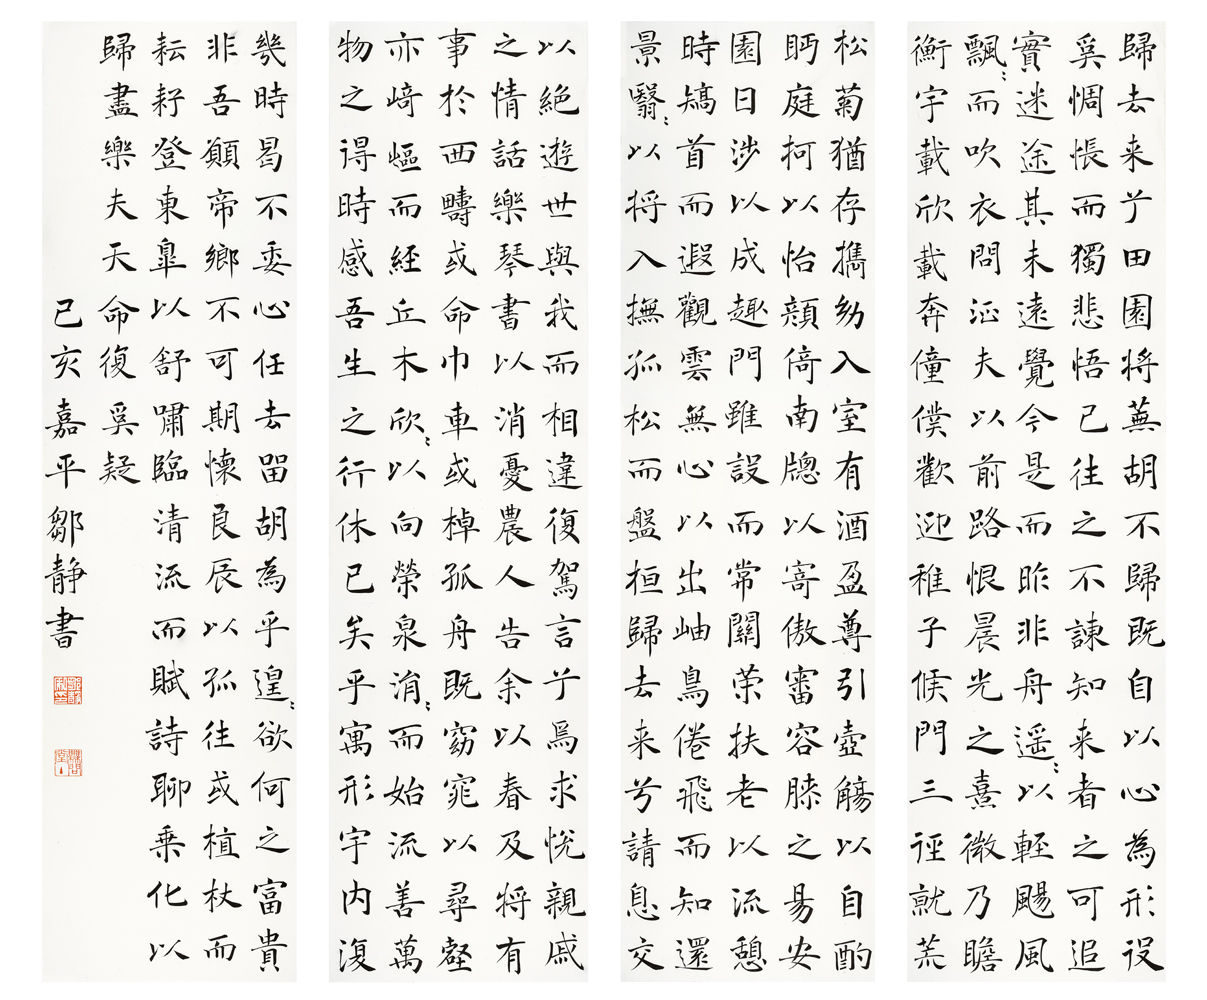 歸去来兮田園将蕪胡不歸既自以心為形役
奚惆悵而獨悲悟已往之不諫知来者之可追
實迷途其未遠覺今是而昨非舟遥〻以輕颺風
飄〻而吹衣問征夫以前路恨晨光之熹微乃瞻
衡宇載欣載奔僮僕歡迎稚子候門三徑就荒
松菊猶存攜幼入室有酒盈尊引壺觴以自酌
眄庭柯以怡顔倚南牕以寄傲審容膝之易安
園日涉以成趣門雖設而常關策扶老以流憩
時矯首而遐觀雲無心以出岫鳥倦飛而知還
景翳〻以将入撫孤松而盤桓歸去来兮請息交
以絶遊世與我而相違復駕言兮焉求悦親戚
之情話樂琴書以消憂農人告余以春及将有
事於西疇或命巾車或棹孤舟既窈窕以尋壑
亦崎嶇而經丘木欣〻以向榮泉涓〻而始流善萬
物之得時感吾生之行休已矣乎寓形宇内復
幾時曷不委心任去留胡為乎遑〻欲何之富貴
非吾願帝鄉不可期懷良辰以孤往或植杖而
耘耔登東皋以舒嘯臨清流而賦詩聊乗化以
歸盡樂夫天命復奚疑
己亥嘉平鄒静書